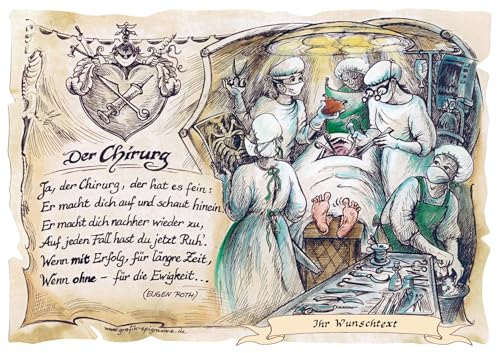 Der Chirurg
Ja, der Chirurg, der hat es fein:
Er macht dich auf und schaut hinein.
Er macht dich nachher wieder zu,
Auf jeden Fall hast du jetzt Ruh'.
Wenn mit Erfolg, für längre Zeit,
Wenn ohne – für die Ewigkeit...
(EUGEN ROTH)
www.grafik-epigramme.de
Ihr Wunschtext